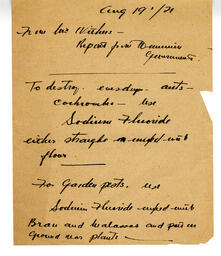 Aug 19
From Mr
Report from Dominion
Government
To destroy ants
cockroaches - use
Sodium Fluoride
either straight or mixed with
flour
For Garden pests. use
Sodium Fluoride mixed with
Bran and Molasses and put on
ground near plants